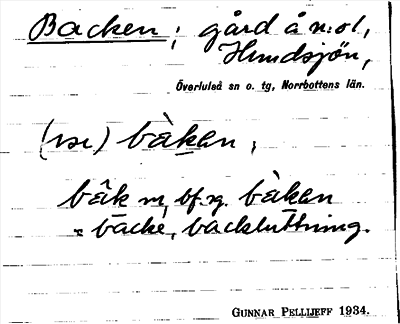 Backen; gård å n:o1,
Hundsjön,
Överluleå sn o. tg, Norrbottens län.
(use) bàkan,
bàk m, bf. sg. bàkan
= backe, backsluttning.
GUNNAR PELLIJEFF 1934.